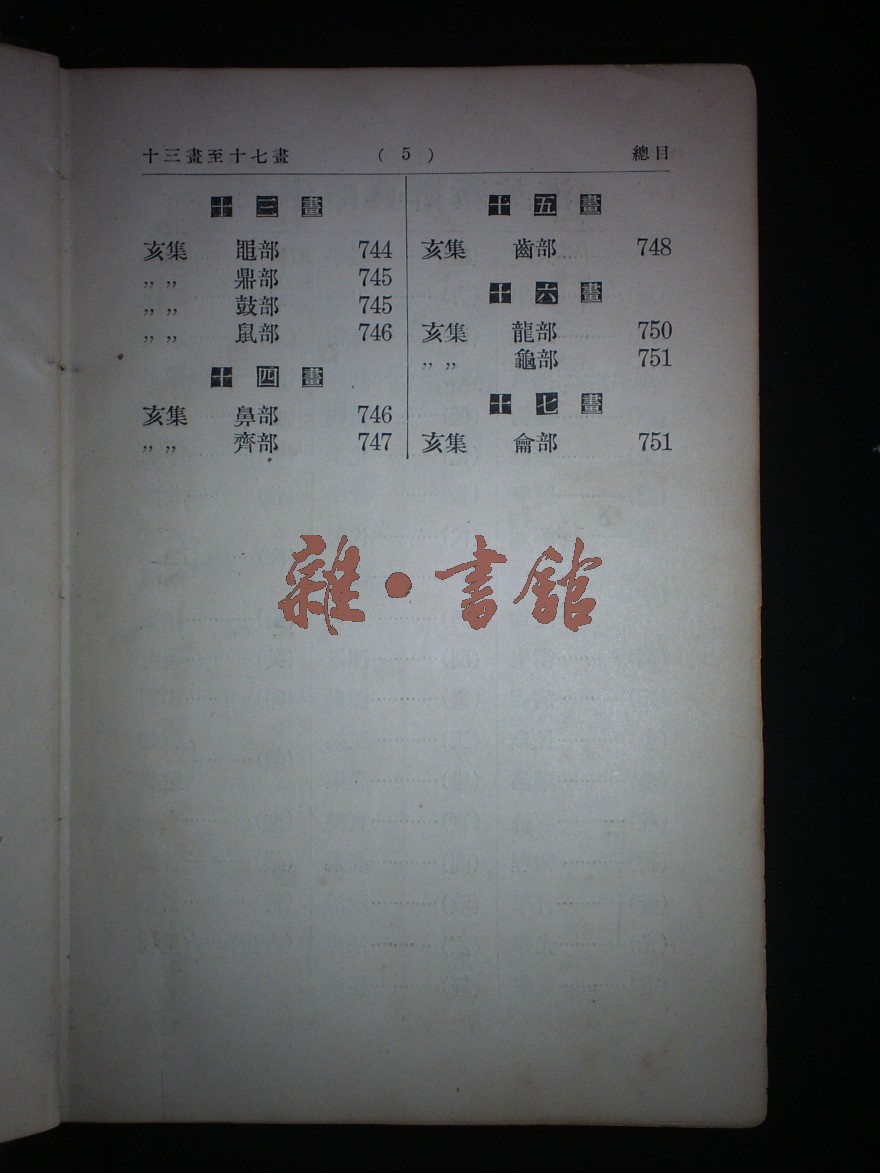 十三畫至十七畫 ( 5 ) 總目
十三畫
亥集 黽部 744
,, ,, 鼎部 745
,, ,, 鼓部 745
,, ,, 鼠部 746
十四畫
亥集 鼻部 746
,, ,, 齊部 747
十五畫
亥集 齒部 748
十六畫
亥集 龍部 750
,, ,, 龜部 751
十七畫
亥集 龠部 751
雜·書館